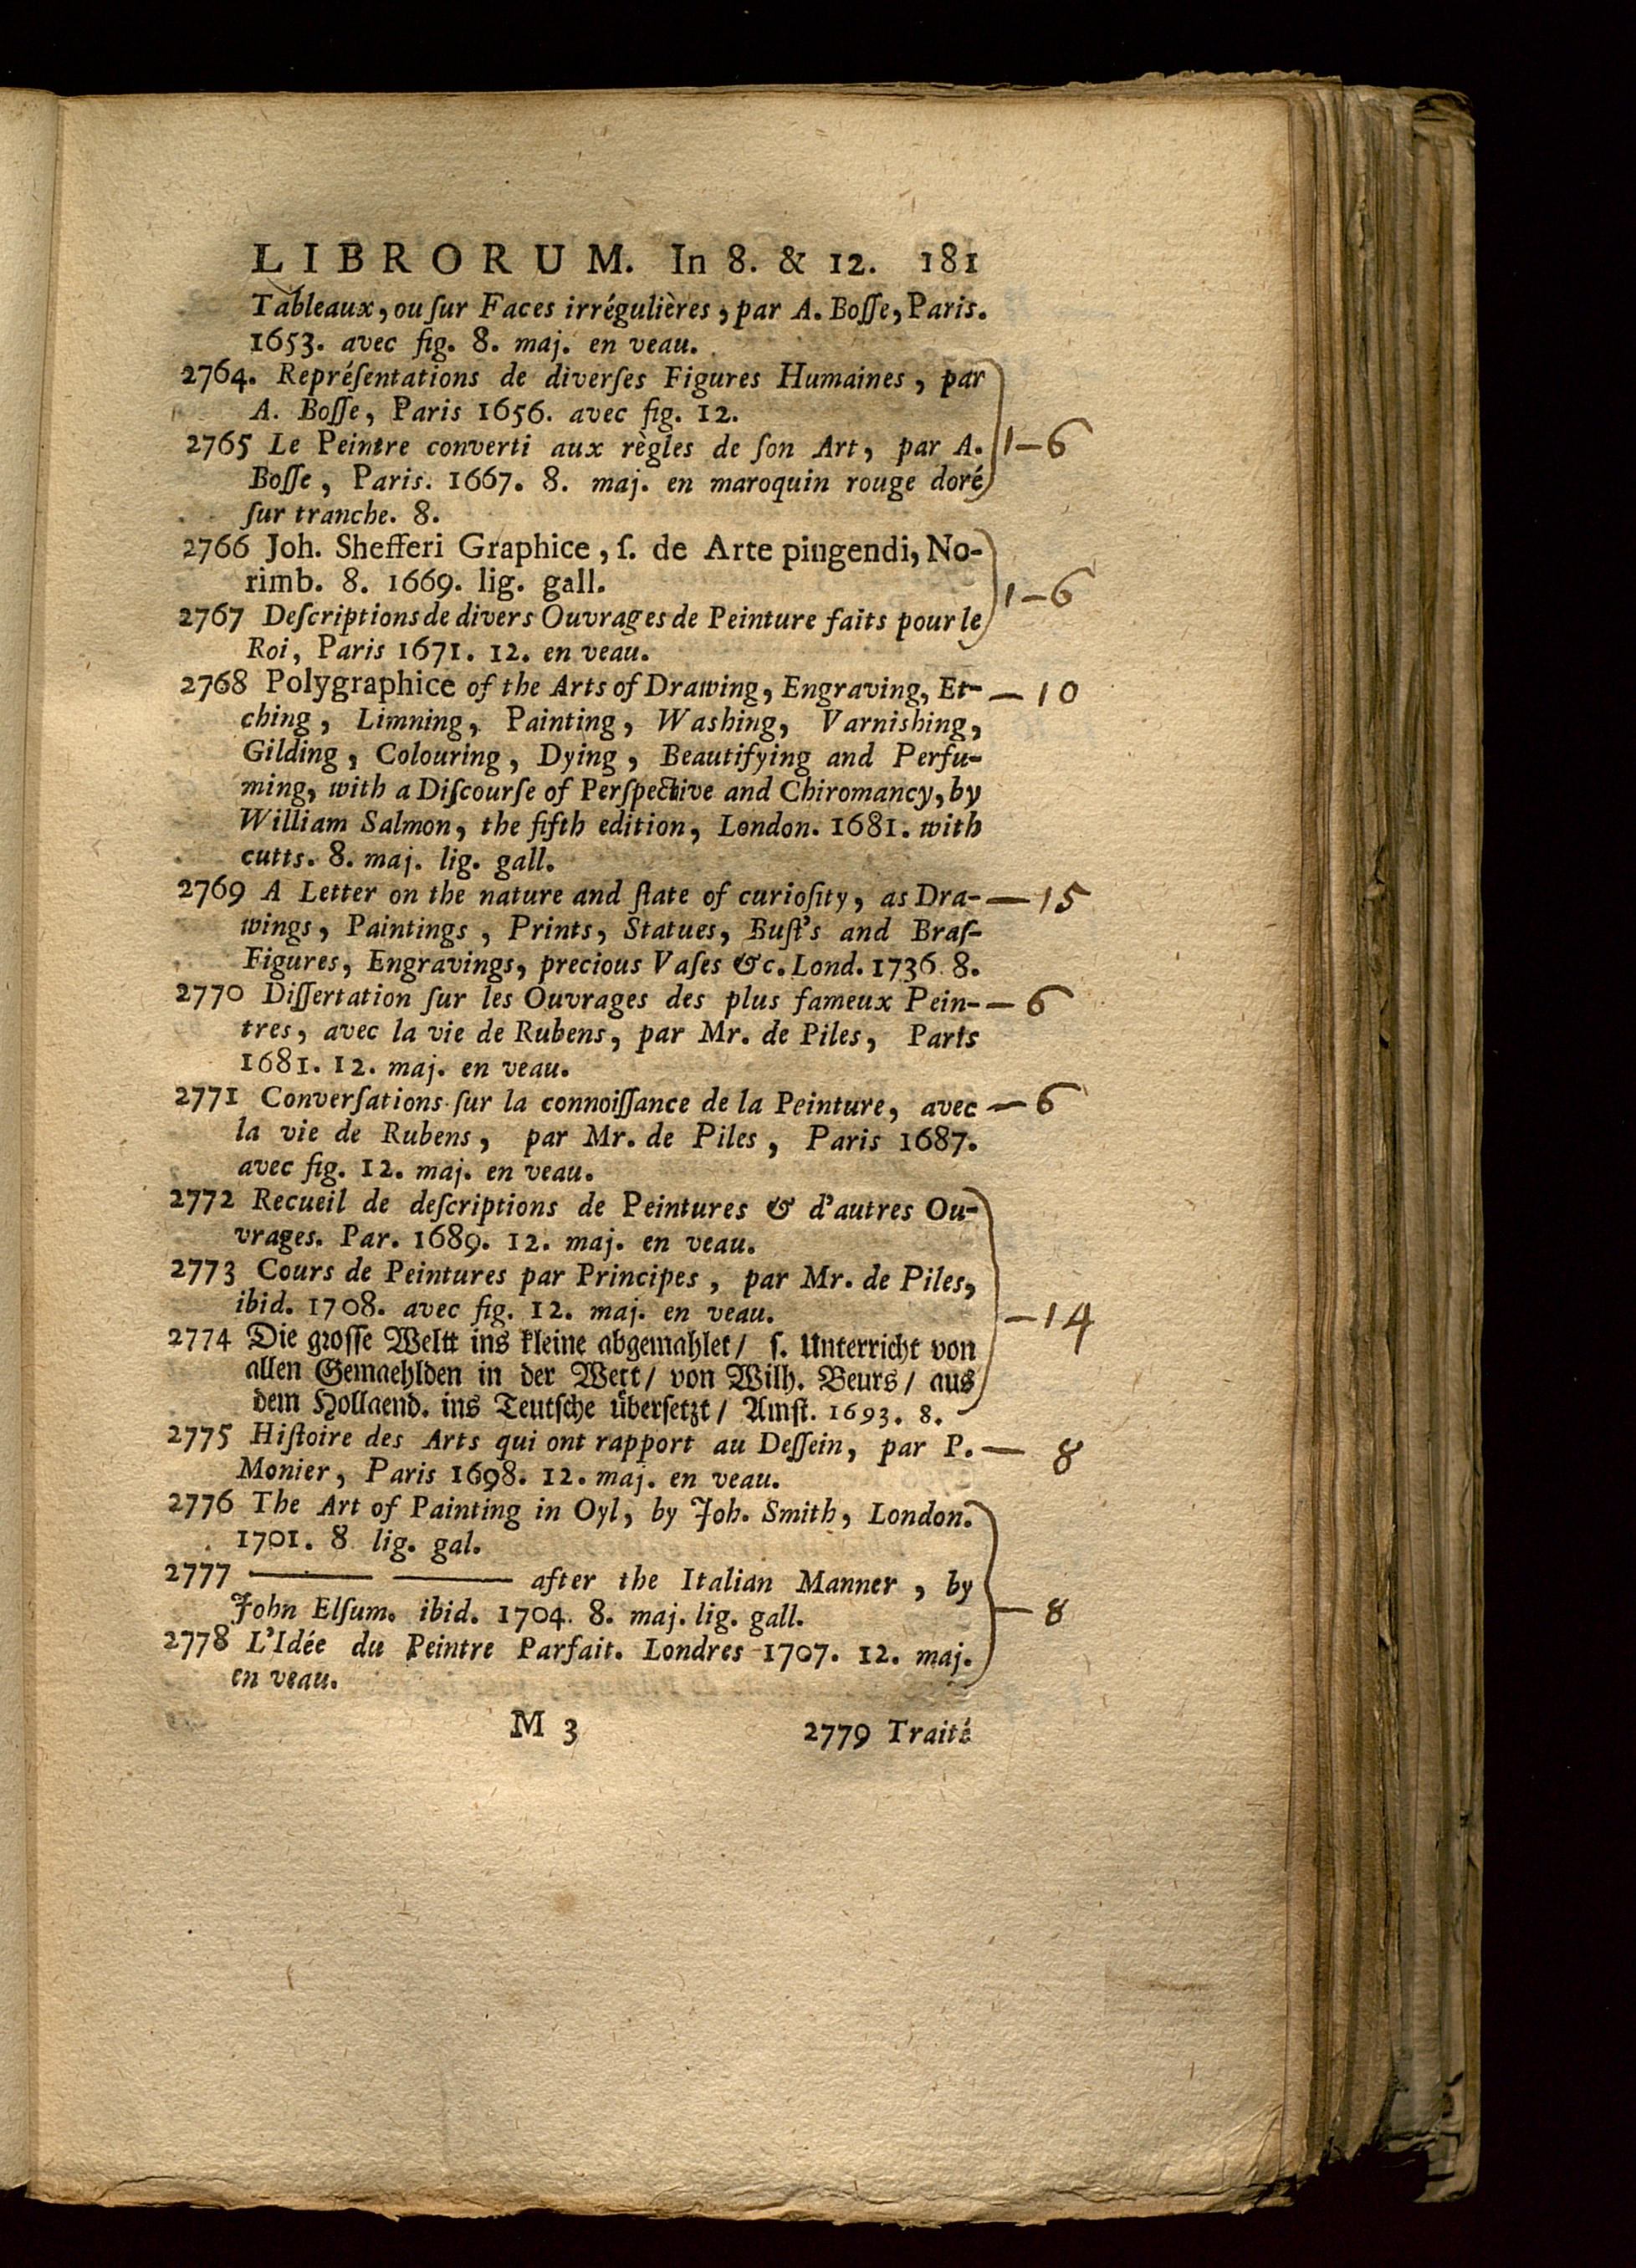 LIBRORUM. In 8. & 12. 181
Tableaux, ou ſur Faces irrégulières, par A. Boſſe, Paris.
1653. avec fig. 8. maj. en veau.
2764. Repréſentations de diverſes Figures Humaines, par
A. Boſſe, Paris 1656. avec fig. 12.
2765 Le Peintre converti aux règles de ſon Art, par A. 1-6
Boſſe, Paris. 1667. 8. maj. en maroquin rouge doré
ſur tranche. 8.
2766 Joh. Shefferi Graphice, ſ. de Arte pingendi, No-
rimb. 8. 1669. lig. gall. 1-6
2767 Deſcriptions de divers Ouvrages de Peinture faits pour le
Roi, Paris 1671. 12. en veau.
2768 Polygraphice of the Arts of Drawing, Engraving, Et- — 10
ching, Limning, Painting, Washing, Varnishing,
Gilding, Colouring, Dying, Beautifying and Perfu-
ming, with a Diſcourſe of Perſpective and Chiromancy, by
William Salmon, the fifth edition, London. 1681. with
cutts. 8. maj. lig. gall.
2769 A Letter on the nature and ſtate of curioſity, as Dra- — 15
wings, Paintings, Prints, Statues, Buſt's and Braſ-
Figures, Engravings, precious Vaſes &c. Lond. 1736. 8.
2770 Diſſertation ſur les Ouvrages des plus fameux Pein- — 6
tres, avec la vie de Rubens, par Mr. de Piles, Paris
1681. 12. maj. en veau.
2771 Converſations ſur la connoiſſance de la Peinture, avec — 6
la vie de Rubens, par Mr. de Piles, Paris 1687.
avec fig. 12. maj. en veau.
2772 Recueil de deſcriptions de Peintures & d'autres Ou-
vrages. Par. 1689. 12. maj. en veau.
2773 Cours de Peintures par Principes, par Mr. de Piles,
ibid. 1708. avec fig. 12. maj. en veau. — 14
2774 Die groſſe Weltt ins kleine abgemahlet/ ſ. Unterricht von
allen Gemaehlden in der Wett/ von Wilh. Beurs/ aus
dem Hollaend. ins Teutſche überſetzt/ Amſt. 1693. 8.
2775 Hiſtoire des Arts qui ont rapport au Deſſein, par P. — 8
Monier, Paris 1698. 12. maj. en veau.
2776 The Art of Painting in Oyl, by Joh. Smith, London.
1701. 8. lig. gal.
2777 ——— ——— after the Italian Manner, by
John Elſum. ibid. 1704. 8. maj. lig. gall. — 8
2778 L'Idée du Peintre Parfait. Londres 1707. 12. maj.
en veau.
M 3 2779 Traité